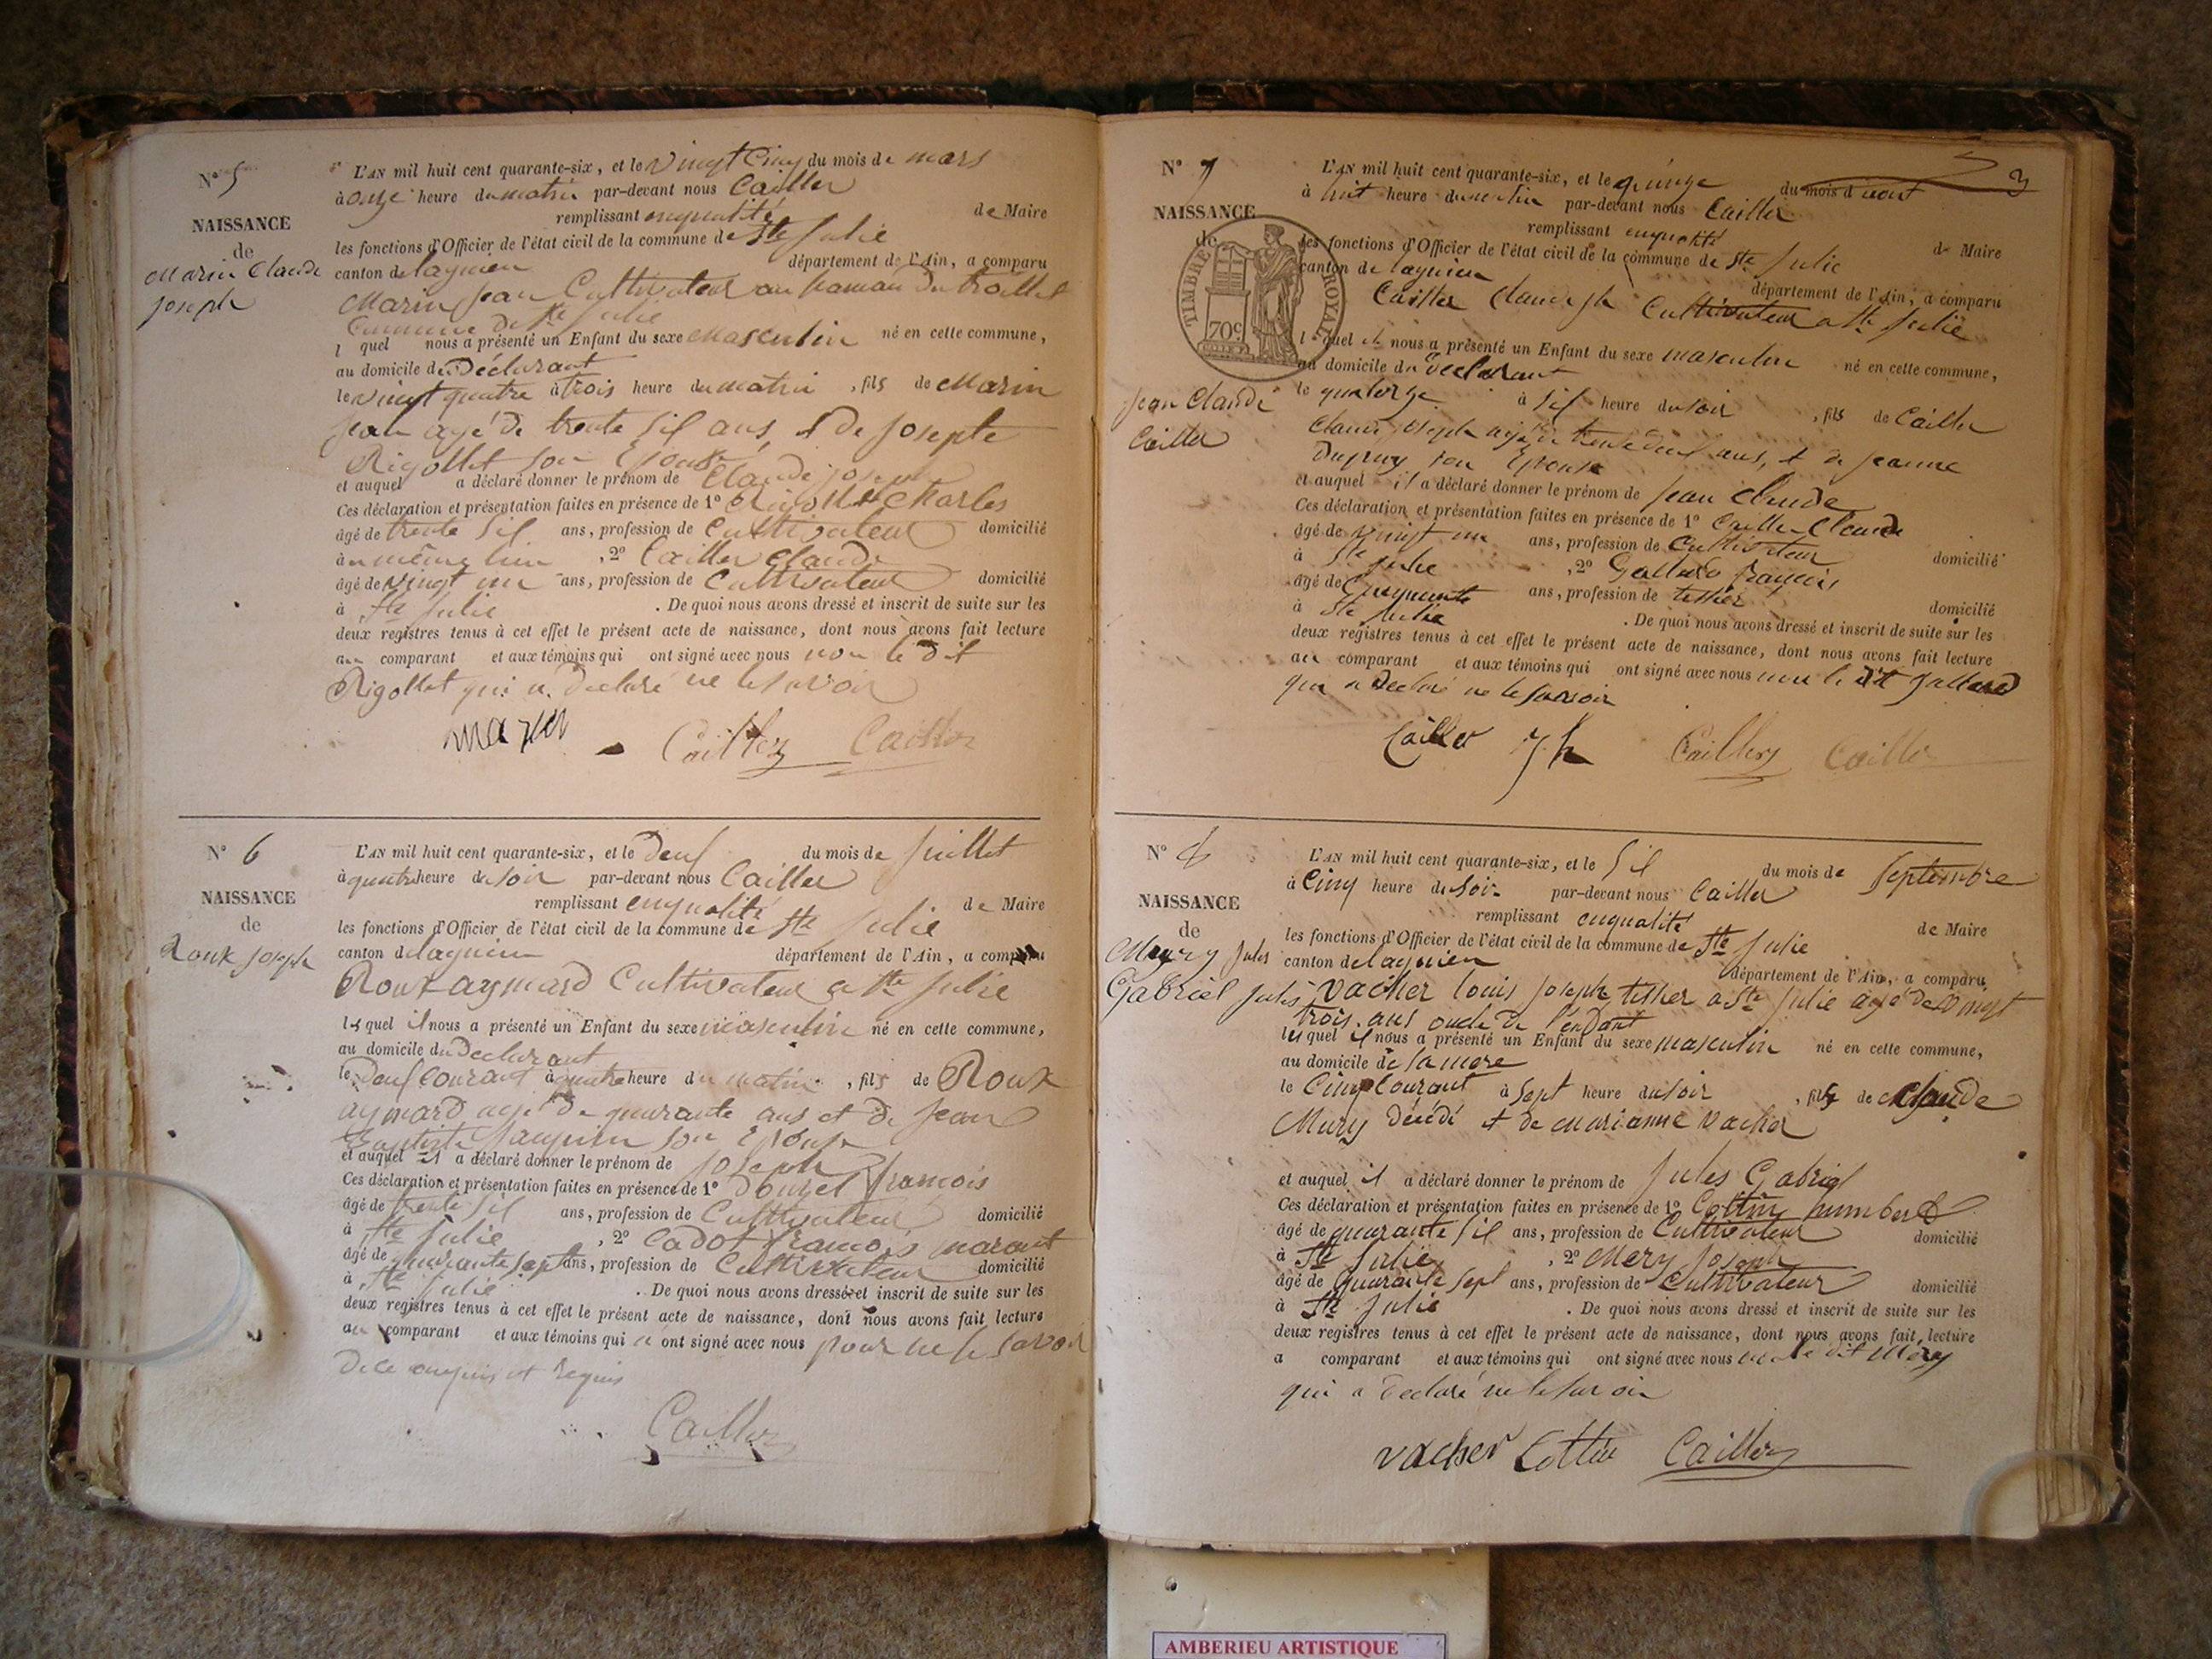 N° 5
NAISSANCE
de
Marin Claude
joseph
L'AN mil huit cent quarante-six, et le vingt Cinq du mois de mars
à onze heure du matin par-devant nous Cailler
remplissant enqualité de Maire
les fonctions d'Officier de l'état civil de la commune de Ste Julie
canton de lagnieu département de l'Ain, a comparu
Marin Jean Cultivateur au hamau du trollet
Commune de Ste Julie
l quel nous a présenté un Enfant du sexe Masculin né en cette commune,
au domicile du Déclarant
le vingt quatre à trois heure du matin , fils de Marin
Jean agé de trente sil ans, & de Josepte
Rigollet son Epouse
et auquel a déclaré donner le prénom de Claude joseph
Ces déclaration et présentation faites en présence de 1° Rigollet Charles
âgé de trente sil ans, profession de Cultivateur domicilié
à même lieu , 2° Cailler Claude
âgé de vingt un ans, profession de Cultivateur domicilié
à Ste Julie . De quoi nous avons dressé et inscrit de suite sur les
deux registres tenus à cet effet le présent acte de naissance, dont nous avons fait lecture
au comparant et aux témoins qui ont signé avec nous non le dit
Rigollet qui a declaré ne le savoir
marin Cailler Cailler
N° 6
NAISSANCE
de
Roux Joseph
L'AN mil huit cent quarante-six, et le deux du mois de Juillet
à quatre heure du soir par-devant nous Cailler
remplissant enqualité de Maire
les fonctions d'Officier de l'état civil de la commune de Ste Julie
canton de lagnieu département de l'Ain, a comparu
Roux aymard Cultivateur a Ste Julie
lequel il nous a présenté un Enfant du sexe masculin né en cette commune,
au domicile du Declarant
le Deux Courant à quatre heure du matin , fils de Roux
aymard agé de quarante ans et de Jean
Baptiste son Epouse
et auquel il a déclaré donner le prénom de Joseph
Ces déclaration et présentation faites en présence de 1° françois
âgé de trente sil ans, profession de Cultivateur domicilié
à Ste Julie , 2° Cadot françois
âgé de quarante sept ans, profession de Cultivateur domicilié
à Ste Julie . De quoi nous avons dressé et inscrit de suite sur les
deux registres tenus à cet effet le présent acte de naissance, dont nous avons fait lecture
au comparant et aux témoins qui ont signé avec nous pour ne le savoir
De ce enquis et requis
Cailler
3
N° 7
NAISSANCE
de
TIMBRE ROYAL
70c
Jean Claude
Cailler
L'AN mil huit cent quarante-six, et le quinze du mois d'aout
à huit heure du matin par-devant nous Cailler
remplissant enqualité de Maire
les fonctions d'Officier de l'état civil de la commune de Ste Julie
canton de lagnieu département de l'Ain, a comparu
Cailler Claude jh Cultivateur a Ste Julie
l quel nous a présenté un Enfant du sexe masculin né en cette commune,
au domicile du Declarant
le quatorze à sil heure du soir , fils de Cailler
Claude joseph agé de trente deux ans, & de jeanne
Dupuy son Epouse
et auquel il a déclaré donner le prénom de Jean Claude
Ces déclaration et présentation faites en présence de 1° Cailler Claude
âgé de vingt un ans, profession de Cultivateur domicilié
à Ste Julie , 2° Gallard françois
âgé de Cinquante ans, profession de tissier domicilié
à Ste Julie . De quoi nous avons dressé et inscrit de suite sur les
deux registres tenus à cet effet le présent acte de naissance, dont nous avons fait lecture
au comparant et aux témoins qui ont signé avec nous non le dit Gallard
qui a Declaré ne le savoir
Cailler jh Cailler Cailler
N° 8
NAISSANCE
de
Mury Jules
Gabriel
L'AN mil huit cent quarante-six, et le Sil du mois de Septembre
à Cinq heure du soir par-devant nous Cailler
remplissant enqualité de Maire
les fonctions d'Officier de l'état civil de la commune de Ste Julie
canton de lagnieu département de l'Ain, a comparu
Vacher louis joseph tissier a Ste Julie agé de vingt
trois ans oncle de l'enfant
lequel il nous a présenté un Enfant du sexe masculin né en cette commune,
au domicile de sa mere
le Cinq Courant à sept heure du soir , fils de Claude
Mury décédé & de marianne Vacher
et auquel il a déclaré donner le prénom de Jules Gabriel
Ces déclaration et présentation faites en présence de 1° Cottin humbert
âgé de quarante sil ans, profession de Cultivateur domicilié
à Ste Julie , 2° Mery joseph
âgé de quarante sept ans, profession de Cultivateur domicilié
à Ste Julie . De quoi nous avons dressé et inscrit de suite sur les
deux registres tenus à cet effet le présent acte de naissance, dont nous avons fait lecture
a comparant et aux témoins qui ont signé avec nous non le dit Méry
qui a declaré ne le savoir
vacher Cottin Cailler
AMBERIEU ARTISTIQUE